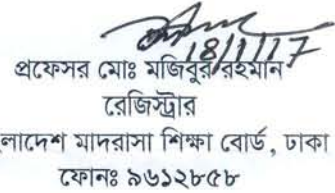 18/1/17
প্রফেসর মোঃ মজিবুর রহমান
রেজিস্ট্রার
লাদেশ মাদরাসা শিক্ষা বোর্ড, ঢাকা
ফোনঃ ৯৬১২৮৫৮